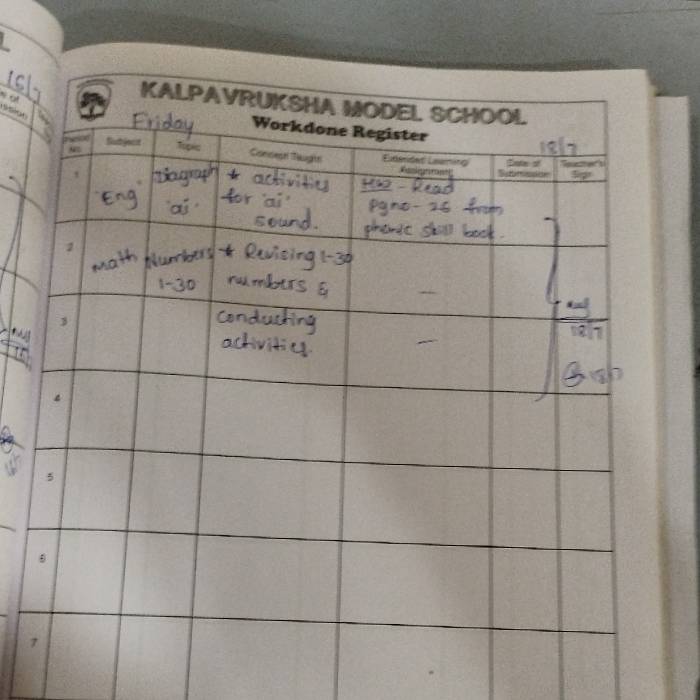 L
16/7
KALPAVRUKSHA MODEL SCHOOL
Friday
Workdone Register
18/7
Period No.
Subject
Topic
Concept Taught
Extended Learning/ Assignment
Date of Submission
Teacher's Sign
1
"Eng"
Diagraph
'ai'
* activities
for 'ai'
sound.
HW - Read
Pgno - 26 from
phonic skill book.
2
Math
Numbers
1-30
* Revising 1-30
numbers &
—
18/7
3
conducting
activities.
—
18/7
4
5
6
7